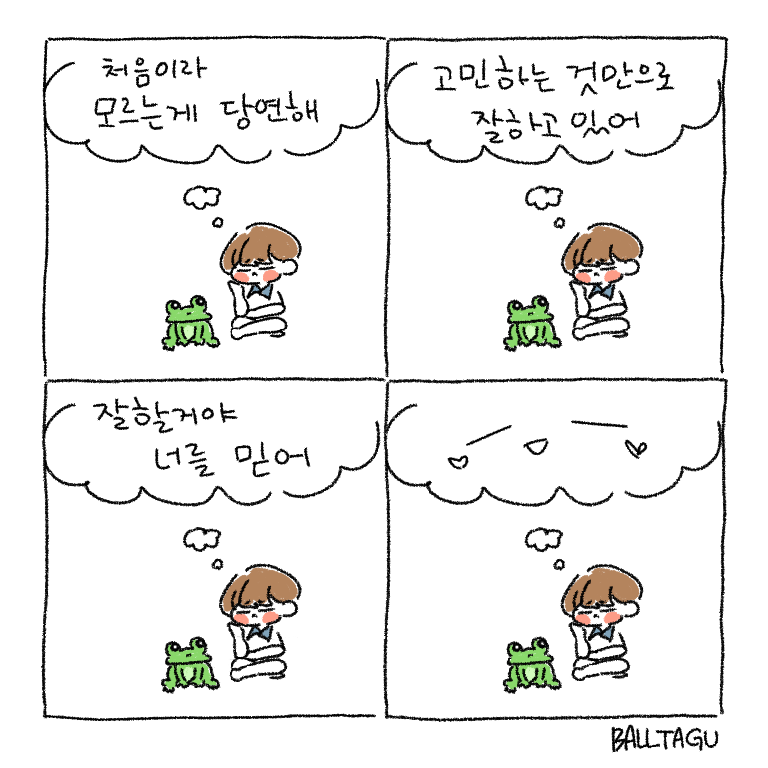 처음이라
모르는게 당연해
고민하는 것만으로
잘하고 있어
잘할거야
너를 믿어
BALLTAGU